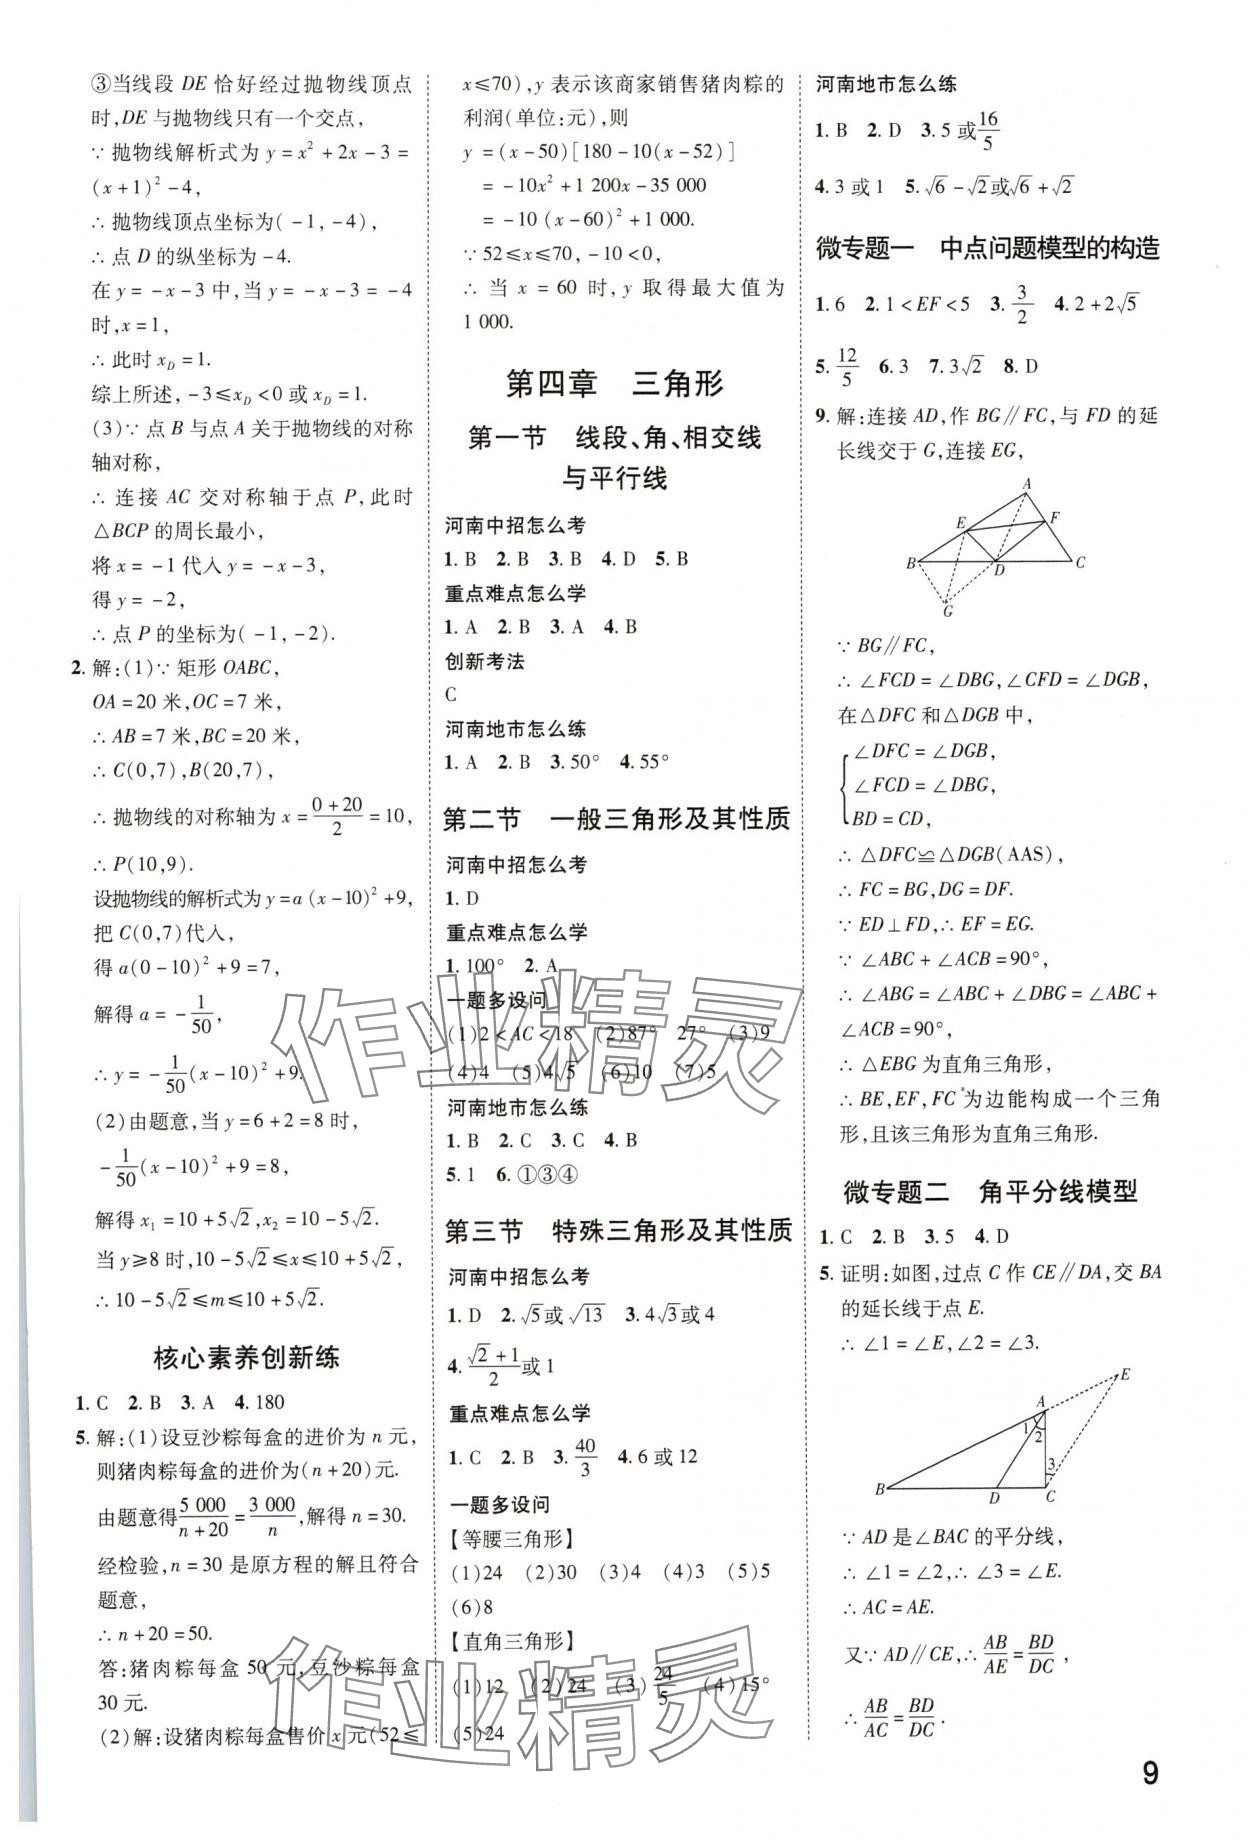 ③当线段 DE 恰好经过抛物线顶点
时,DE与抛物线只有一个交点,
∵ 抛物线解析式为 y=x²+2x-3=
(x+1)²-4,
∴ 抛物线顶点坐标为(-1,-4),
∴ 点 D 的纵坐标为-4.
在 y=-x-3 中,当 y=-x-3=-4
时,x=1,
∴ 此时 x_D=1.
综上所述,-3≤x_D<0 或 x_D=1.
(3)∵ 点 B 与点 A 关于抛物线的对称
轴对称,
∴ 连接 AC 交对称轴于点 P,此时
△BCP 的周长最小,
将 x=-1 代入 y=-x-3,
得 y=-2,
∴ 点 P 的坐标为(-1,-2).
2. 解:(1)∵ 矩形 OABC,
OA=20 米,OC=7 米,
∴ AB=7 米,BC=20 米,
∴ C(0,7),B(20,7),
∴ 抛物线的对称轴为 x=(0+20)/2=10,
∴ P(10,9).
设抛物线的解析式为 y=a(x-10)²+9,
把 C(0,7)代入,
得 a(0-10)²+9=7,
解得 a=-1/50,
∴ y=-1/50(x-10)²+9.
(2)由题意,当 y=6+2=8 时,
-1/50(x-10)²+9=8,
解得 x₁=10+5√2,x₂=10-5√2.
当 y≥8 时,10-5√2≤x≤10+5√2,
∴ 10-5√2≤m≤10+5√2.
核心素养创新练
1. C 2. B 3. A 4. 180
5. 解:(1)设豆沙粽每盒的进价为 n 元,
则猪肉粽每盒的进价为(n+20)元.
由题意得5 000/(n+20)=3 000/n,解得 n=30.
经检验,n=30 是原方程的解且符合
题意,
∴ n+20=50.
答:猪肉粽每盒 50 元,豆沙粽每盒
30 元.
(2)解:设猪肉粽每盒售价 x 元(52≤
x≤70),y 表示该商家销售猪肉粽的
利润(单位:元),则
y=(x-50)[180-10(x-52)]
=-10x²+1 200x-35 000
=-10(x-60)²+1 000.
∵ 52≤x≤70,-10<0,
∴ 当 x=60 时,y 取得最大值为
1 000.
第四章 三角形
第一节 线段、角、相交线
与平行线
河南中招怎么考
1. B 2. B 3. B 4. D 5. B
重点难点怎么学
1. A 2. B 3. A 4. B
创新考法
C
河南地市怎么练
1. A 2. B 3. 50° 4. 55°
第二节 一般三角形及其性质
河南中招怎么考
1. D
重点难点怎么学
1. 100° 2. A
一题多设问
(1)2<AC<18 (2)87° 27° (3)9
(4)4 (5)4√5 (6)10 (7)5
河南地市怎么练
1. B 2. C 3. C 4. B
5. 1 6. ①③④
第三节 特殊三角形及其性质
河南中招怎么考
1. D 2. √5或√13 3. 4√3或4
4. (√2+1)/2或1
重点难点怎么学
1. C 2. B 3. 40/3 4. 6 或 12
一题多设问
【等腰三角形】
(1)24 (2)30 (3)4 (4)3 (5)5
(6)8
【直角三角形】
(1)12 (2)24 (3)24/5 (4)15°
(5)24
河南地市怎么练
1. B 2. D 3. 5 或16/5
4. 3 或 1 5. √6-√2或√6+√2
微专题一 中点问题模型的构造
1. 6 2. 1<EF<5 3. 3/2 4. 2+2√5
5. 12/5 6. 3 7. 3√2 8. D
9. 解:连接 AD,作 BG∥FC,与 FD 的延
长线交于 G,连接 EG,
A
E F
B D C
G
∵ BG∥FC,
∴ ∠FCD=∠DBG,∠CFD=∠DGB,
在△DFC 和△DGB 中,
∠DFC=∠DGB,
∠FCD=∠DBG,
BD=CD,
∴ △DFC≌△DGB(AAS),
∴ FC=BG,DG=DF.
∵ ED⊥FD,∴ EF=EG.
∵ ∠ABC+∠ACB=90°,
∴ ∠ABG=∠ABC+∠DBG=∠ABC+
∠ACB=90°,
∴ △EBG 为直角三角形,
∴ BE,EF,FC 为边能构成一个三角
形,且该三角形为直角三角形.
微专题二 角平分线模型
1. C 2. B 3. 5 4. D
5. 证明:如图,过点 C 作 CE∥DA,交 BA
的延长线于点 E.
∴ ∠1=∠E,∠2=∠3.
E
A
1 2
3
B D C
∵ AD 是∠BAC 的平分线,
∴ ∠1=∠2,∴ ∠3=∠E.
∴ AC=AE.
又∵ AD∥CE,∴ AB/AE=BD/DC,
∴ AB/AC=BD/DC.
9
作业精灵
作业精灵